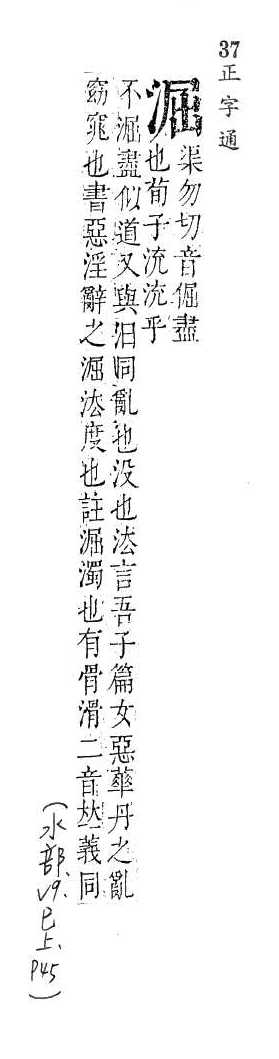 37正字通
淈
渠勿切音倔盡
也荀子流流乎
不淈盡似道又與汩同亂也没也法言吾子篇女惡華丹之亂
窈窕也書惡淫辭之淈法度也註淈濁也有骨滑二音𠀤義同
(水部、V9.巳上、P45)